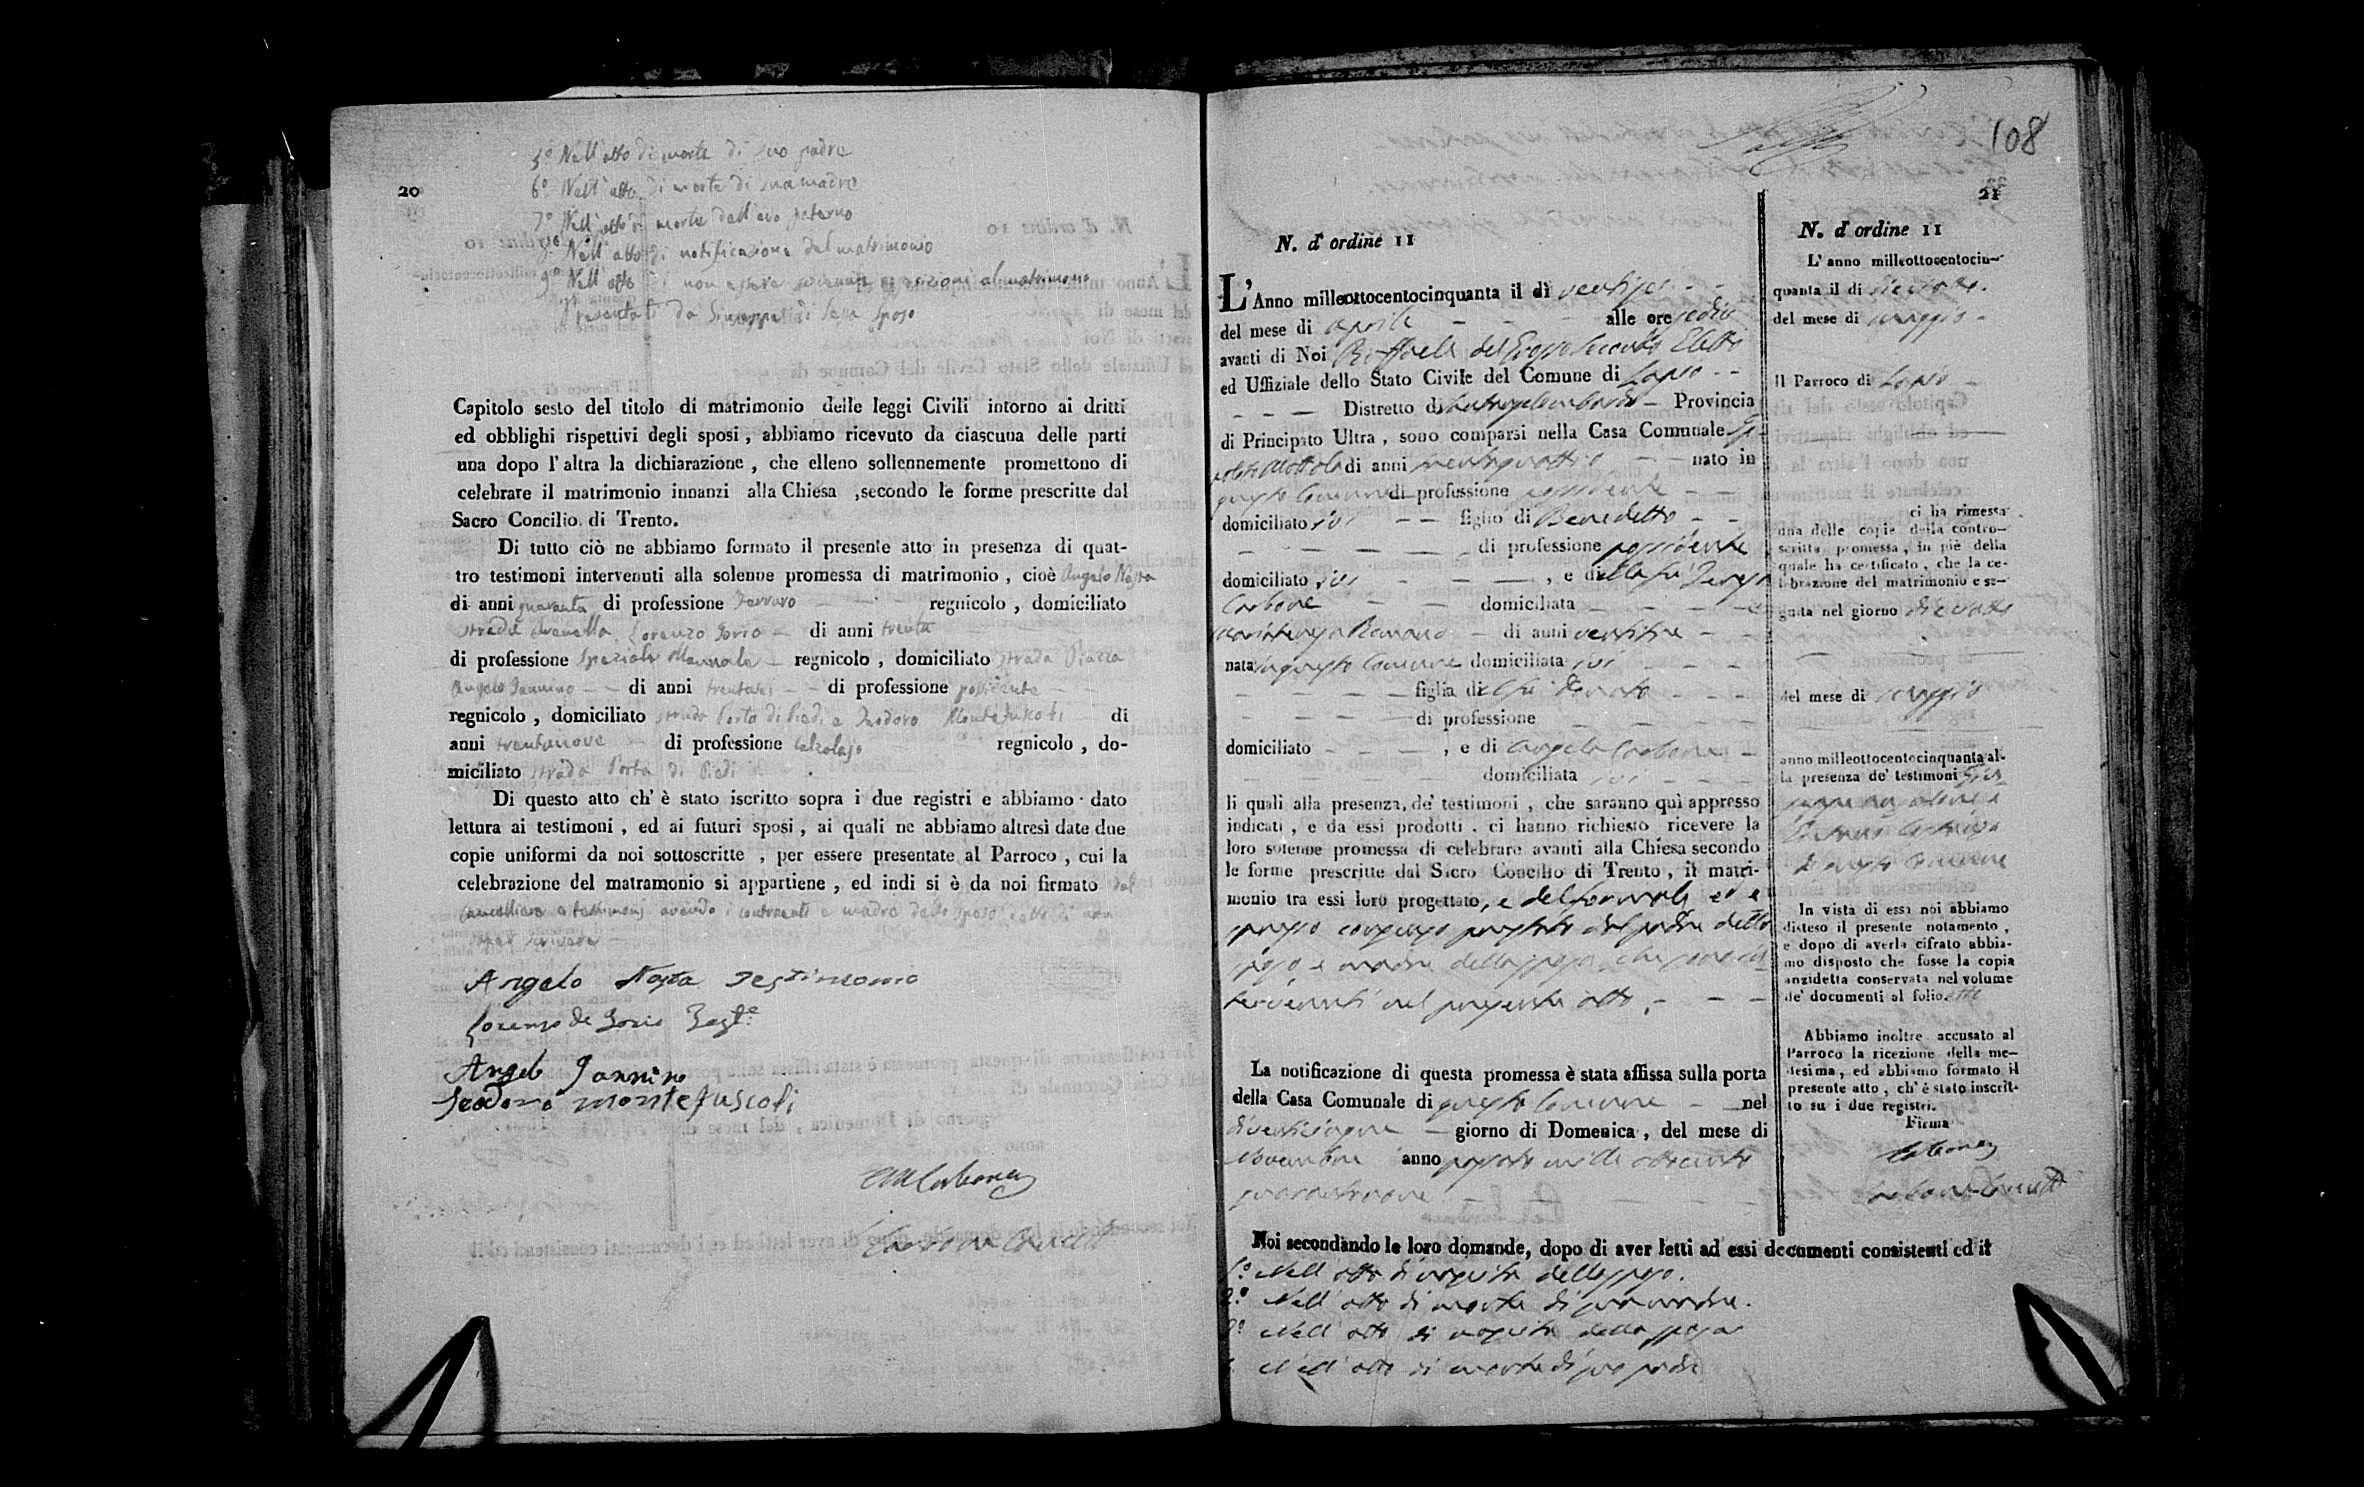 20
5º Nell'atto di morte di suo padre
6º Nell'atto di morte di sua madre
7º Nell'atto di morte dell'avo paterno
Nell'atto di notificazione del matrimonio
9º Nell'atto non essere al matrimonio
sposo
Capitolo sesto del titolo di matrimonio delle leggi Civili intorno ai dritti
ed obblighi rispettivi degli sposi, abbiamo ricevuto da ciascuna delle parti
una dopo l'altra la dichiarazione, che elleno sollennemente promettono di
celebrare il matrimonio innanzi alla Chiesa ,secondo le forme prescritte dal
Sacro Concilio di Trento.
Di tutto ciò ne abbiamo formato il presente atto in presenza di quat-
tro testimoni intervenuti alla solenne promessa di matrimonio, cioè Angelo Nasta
di anni quaranta di professione regnicolo, domiciliato
strada Lorenzo di anni trenta
di professione Speziale Manuale regnicolo, domiciliato strada Piazza
Angelo Jannino di anni trentasei di professione possidente
regnicolo, domiciliato strada Porta di Piedi e Teodoro Montefuscoli di
anni trentanove di professione Calzolajo regnicolo, do-
miciliato strada Porta di Piedi
Di questo atto ch'è stato iscritto sopra i due registri e abbiamo dato
lettura ai testimoni, ed ai futuri sposi, ai quali ne abbiamo altresì date due
copie uniformi da noi sottoscritte, per essere presentate al Parroco, cui la
celebrazione del matramonio si appartiene, ed indi si è da noi firmato dal
cancelliere e testimonj avendo i contraenti e madre dello sposo detto di non
saper scrivere
Angelo Nasta Testimonio
Lorenzo de
Angelo Jannino
Teodoro montefuscoli
108
21
N. d'ordine 11
L'Anno milleottocentocinquanta il dì ventisei
del mese di aprile alle ore sedici
avanti di Noi Raffaele del Secondo Eletto
ed Uffiziale dello Stato Civile del Comune di Lapio
Distretto di Santangelo Lombardi Provincia
di Principato Ultra, sono comparsi nella Casa Comunale
Mottola di anni trentaquattro nato in
questo Comune di professione possidente
domiciliato ivi figlio di Benedetto
di professione possidente
domiciliato ivi , e di della fu Teresa
Carbone domiciliata
Mariateresa Romano di anni ventitre
nata in questo Comune domiciliata ivi
figlia di fu Donato
di professione
domiciliato , e di Angela Carbone
domiciliata ivi
li quali alla presenza, de' testimoni, che saranno quì appresso
indicati, e da essi prodotti, ci hanno richiesto ricevere la
loro solenne promessa di celebrare avanti alla Chiesa secondo
le forme prescritte dal Sacro Concilio di Trento, il matri-
monio tra essi loro progettato, e del formale ed e
spresso consenso prestato dal padre dello
sposo e madre della sposa, che sono in
tervenuti nel presente atto.
La notificazione di questa promessa è stata affissa sulla porta
della Casa Comunale di questo Comune nel
dì venticinque giorno di Domenica, del mese di
Novembre anno passato mille ottocento
quarantanove
Noi secondando le loro domande, dopo di aver letti ad essi documenti consistenti ed it
1º Nell'atto di nascita dello sposo.
2º Nell'atto di morte di sua madre.
3º Nell'atto di nascita della sposa
Nell'atto di morte di suo padre
N. d'ordine 11
L'anno milleottocentocin-
quanta il dì diciotto
del mese di maggio
Il Parroco di Lapio
ci ha rimessa
una delle copie della contro-
scritta promessa, in piè della
quale ha certificato, che la ce-
lebrazione del matrimonio e se-
guita nel giorno diciotto
del mese di maggio
anno milleottocentocinquanta al-
la presenza de' testimoni Giu
seppe e
di questo Comune
In vista di essa noi abbiamo
disteso il presente notamento,
e dopo di averla cifrato abbia-
mo disposto che fosse la copia
anzidetta conservata nel volume
de' documenti al folio otto
Abbiamo inoltre accusato al
Parroco la ricezione della me-
desima, ed abbiamo formato il
presente atto, ch'è stato inscrit-
to su i due registri.
Firma